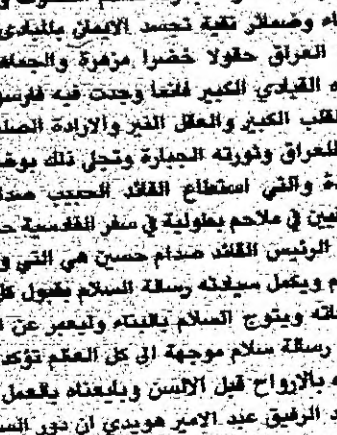 وضمائر نقية تجسد الايمان بالمبادئ
العراق حقولا خضرا مزهرة
القيادي الكبير قائما وجدت فيه فارس
القلب الكبير والعقل النير والارادة
للعراق وثورته الجبارة وتجلى ذلك
والتي استطاع القائد الحبيب
في ملاحم بطولية في سفر القادسية
الرئيس القائد صدام حسين هي التي
ويكمل سيادته رسالة السلام
ويتوج السلام بالبناء وليعبر عن
رسالة سلام موجهة الى كل العالم تؤكد
بالارواح قبل الالسن وبايعناه بالعمل
الرفيق عبد الامير هويدي ان دور